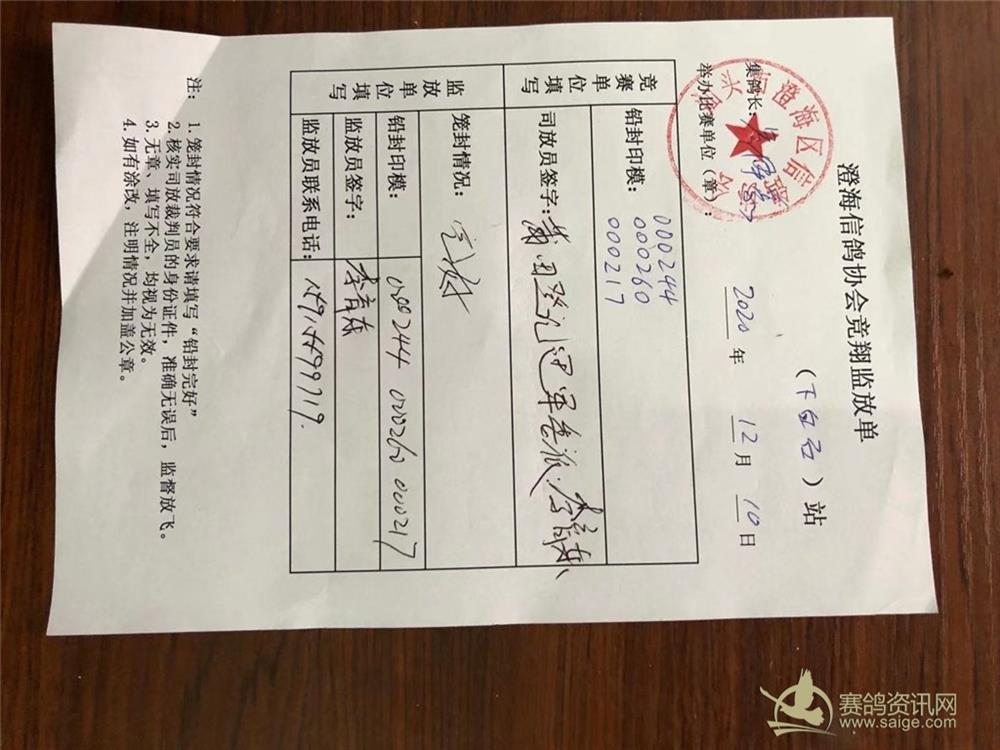 澄海信鸽协会竞翔监放单
（下白石）站
2020 年 12 月 10 日
举办比赛单位（章）：
集鸽长：
澄海区信鸽
竞赛单位填写
铅封印模：
000244
000260
000217
司放员签字：
监放单位填写
笼封情况：
完好
铅封印模：
000244 000260 000217
监放员签字：
监放员联系电话：
注：
1. 笼封情况符合要求请填写“铅封完好”
2. 核实司放裁判员的身份证件，准确无误后，监督放飞。
3. 无章、填写不全，均视为无效。
4. 如有涂改，注明情况并加盖公章。
赛鸽资讯网
www.saige.com